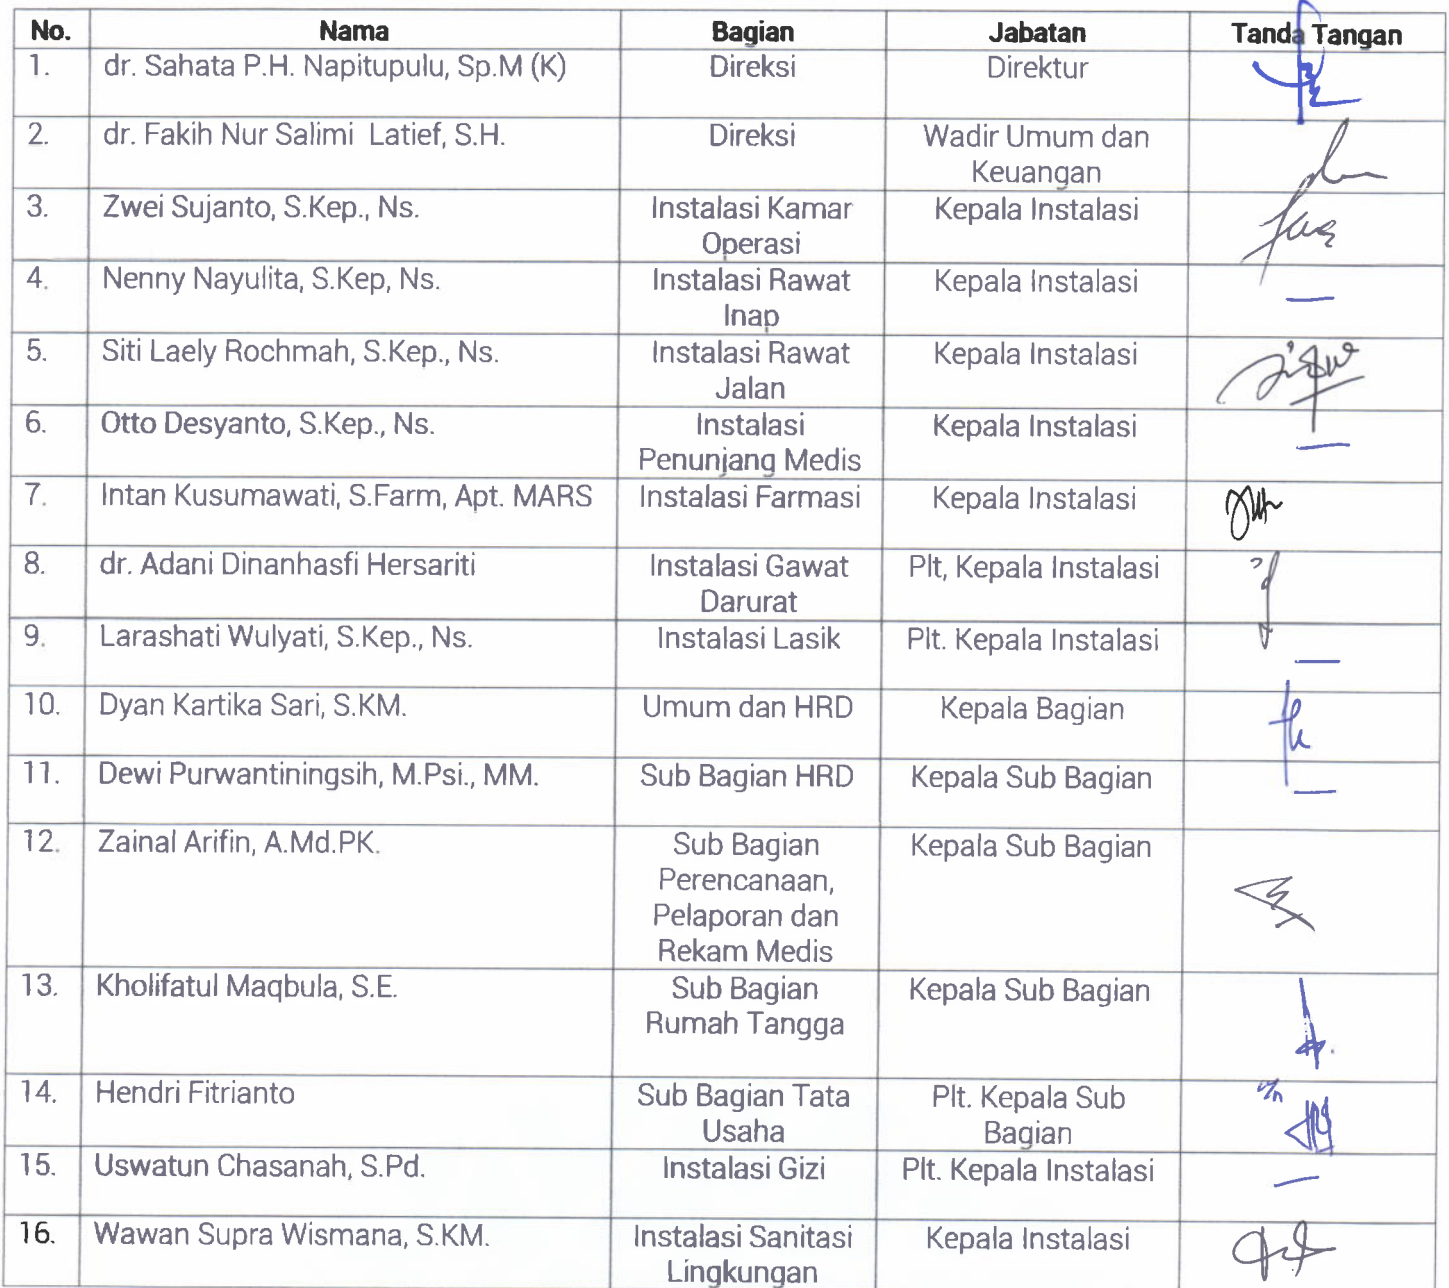 No. Nama Bagian Jabatan Tanda Tangan
1. dr. Sahata P.H. Napitupulu, Sp.M (K) Direksi Direktur
2. dr. Fakih Nur Salimi Latief, S.H. Direksi Wadir Umum dan
Keuangan
3. Zwei Sujanto, S.Kep., Ns. Instalasi Kamar Kepala Instalasi
Operasi
4. Nenny Nayulita, S.Kep, Ns. Instalasi Rawat Kepala Instalasi
Inap
5. Siti Laely Rochmah, S.Kep., Ns. Instalasi Rawat Kepala Instalasi
Jalan
6. Otto Desyanto, S.Kep., Ns. Instalasi Kepala Instalasi
Penunjang Medis
7. Intan Kusumawati, S.Farm, Apt. MARS Instalasi Farmasi Kepala Instalasi
8. dr. Adani Dinanhasfi Hersariti Instalasi Gawat Plt, Kepala Instalasi
Darurat
9. Larashati Wulyati, S.Kep., Ns. Instalasi Lasik Plt. Kepala Instalasi
10. Dyan Kartika Sari, S.KM. Umum dan HRD Kepala Bagian
11. Dewi Purwantiningsih, M.Psi., MM. Sub Bagian HRD Kepala Sub Bagian
12. Zainal Arifin, A.Md.PK. Sub Bagian Kepala Sub Bagian
Perencanaan,
Pelaporan dan
Rekam Medis
13. Kholifatul Maqbula, S.E. Sub Bagian Kepala Sub Bagian
Rumah Tangga
14. Hendri Fitrianto Sub Bagian Tata Plt. Kepala Sub
Usaha Bagian
15. Uswatun Chasanah, S.Pd. Instalasi Gizi Plt. Kepala Instalasi
16. Wawan Supra Wismana, S.KM. Instalasi Sanitasi Kepala Instalasi
Lingkungan